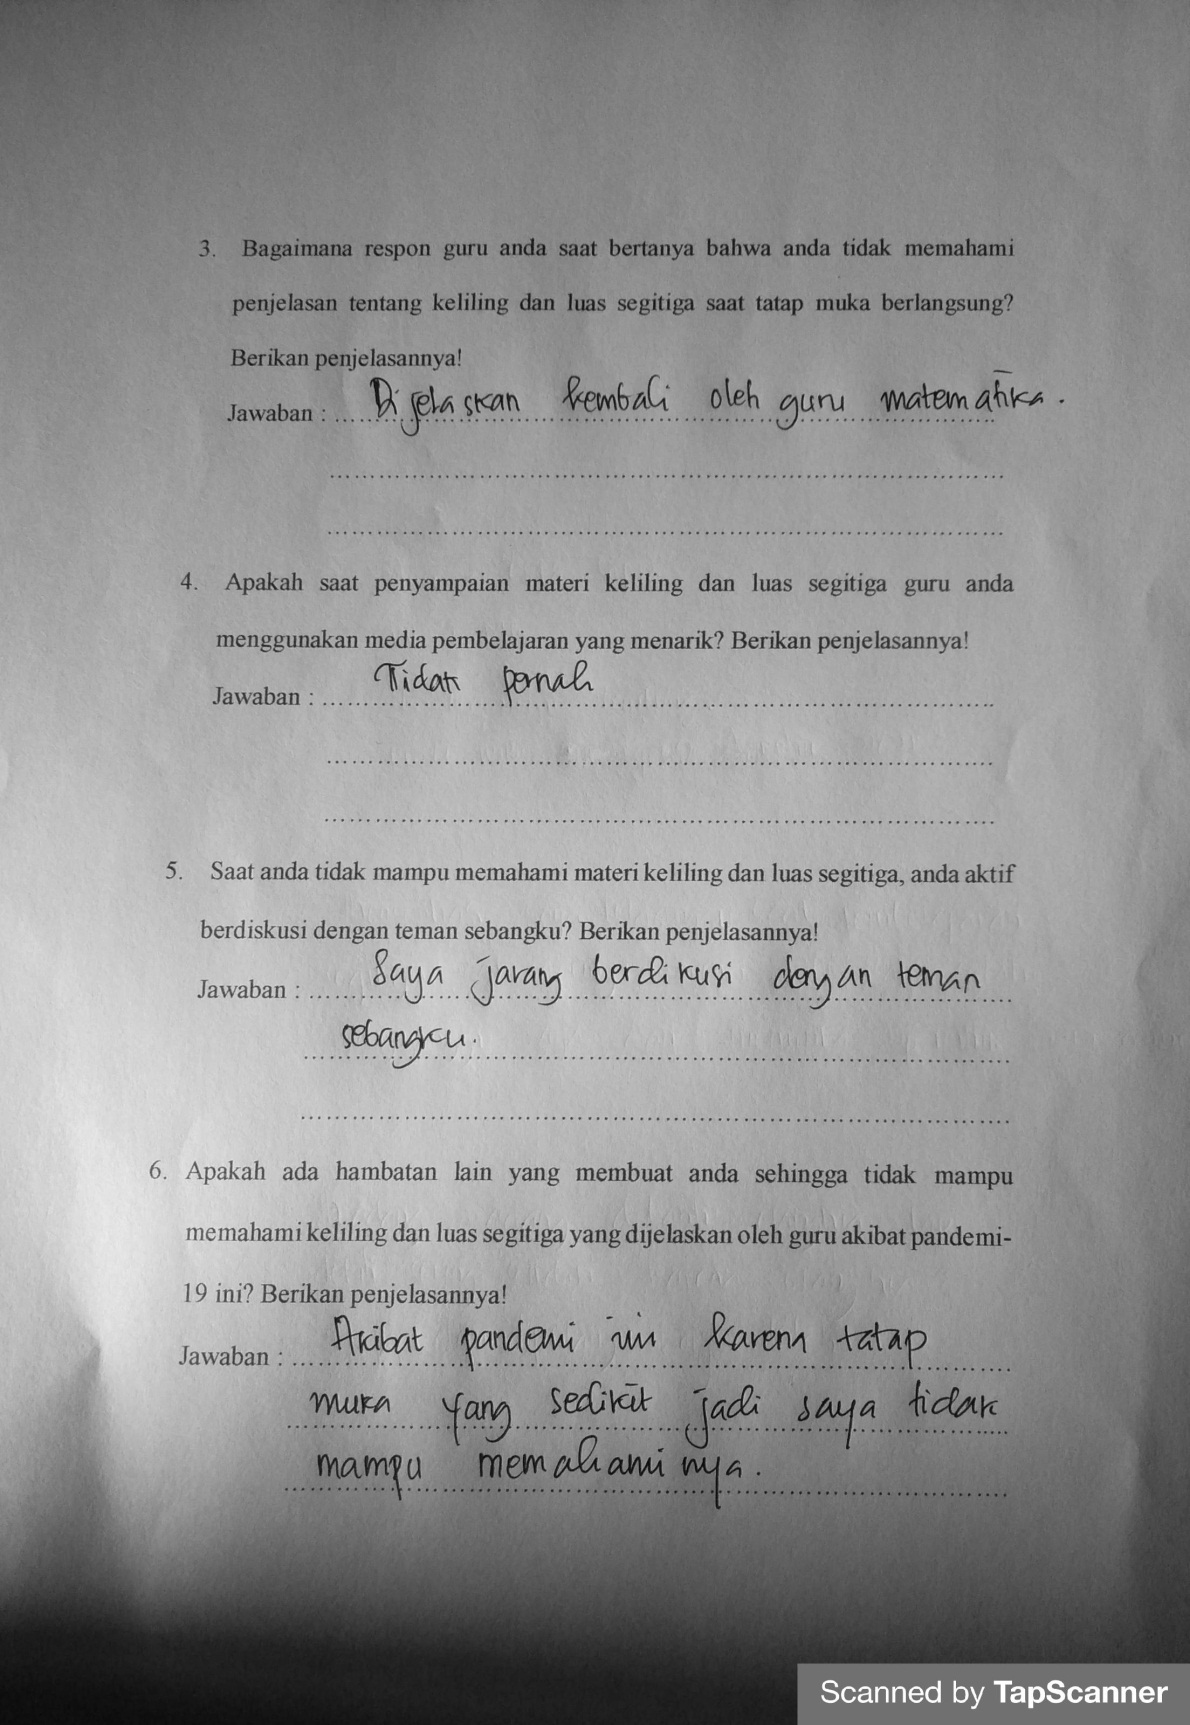 3. Bagaimana respon guru anda saat bertanya bahwa anda tidak memahami
penjelasan tentang keliling dan luas segitiga saat tatap muka berlangsung?
Berikan penjelasannya!
Jawaban : Dijelaskan kembali oleh guru matematika.
4. Apakah saat penyampaian materi keliling dan luas segitiga guru anda
menggunakan media pembelajaran yang menarik? Berikan penjelasannya!
Jawaban : Tidak pernah
5. Saat anda tidak mampu memahami materi keliling dan luas segitiga, anda aktif
berdiskusi dengan teman sebangku? Berikan penjelasannya!
Jawaban : Saya jarang berdikusi dengan teman
sebangku.
6. Apakah ada hambatan lain yang membuat anda sehingga tidak mampu
memahami keliling dan luas segitiga yang dijelaskan oleh guru akibat pandemi-
19 ini? Berikan penjelasannya!
Jawaban : Akibat pandemi ini karena tatap
muka yang sedikit jadi saya tidak
mampu memahaminya.
Scanned by TapScanner